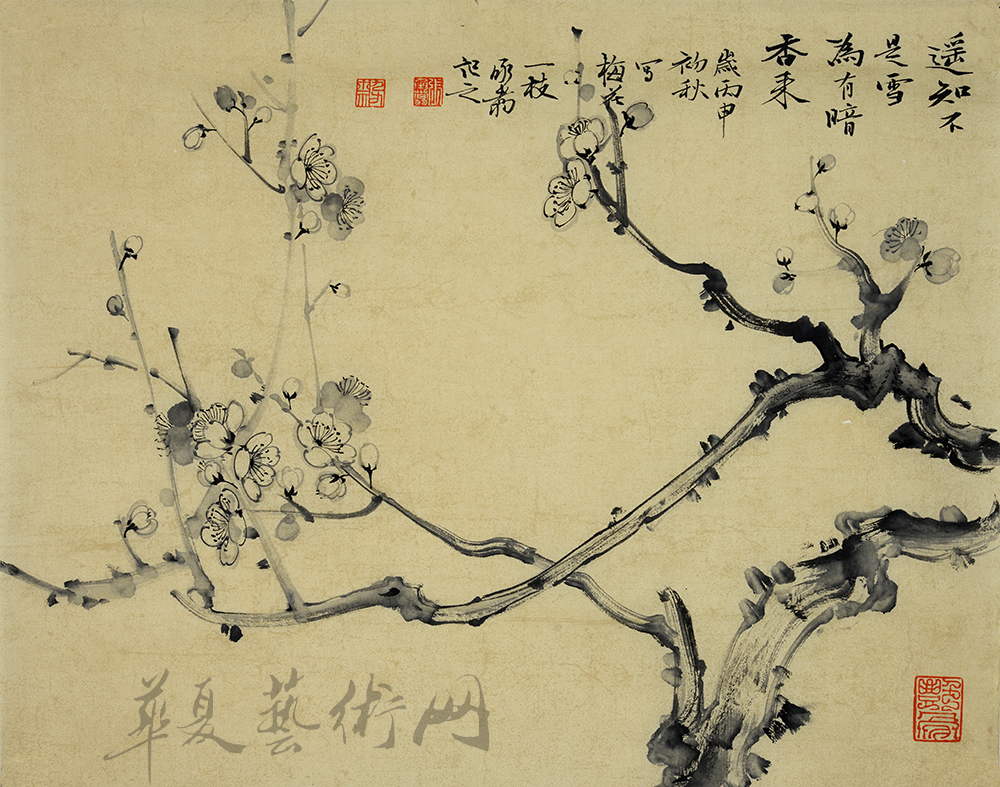 遥知不
是雪
為有暗
香來
歲丙申
初秋
写
梅花
一枝
記之
華夏藝術网